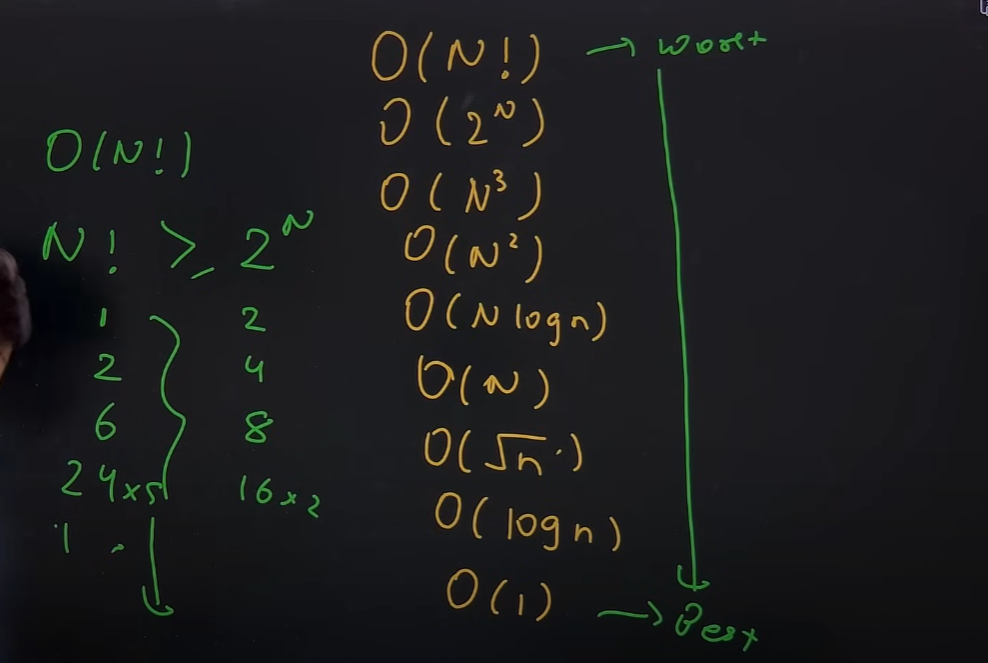 O(N!)
N! ≥ 2^N
1 2
2 4
6 8
24×5 16×2
1
O(N!) → Worst
O(2^N)
O(N³)
O(N²)
O(N log n)
O(N)
O(√n)
O(log n)
O(1) → Best